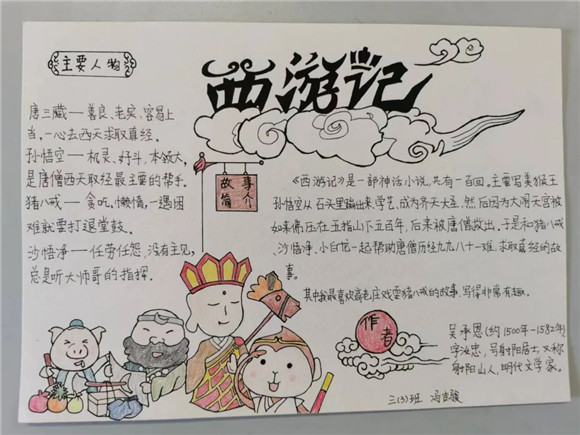 西游记
主要人物
唐三藏——善良、老实、容易上
当。一心去西天求取真经。
孙悟空——机灵、好斗、本领大,
是唐僧西天取经最主要的帮手。
猪八戒——贪吃、懒惰,一遇困
难就要打退堂鼓。
沙悟净——任劳任怨,没有主见,
总是听大师哥的指挥。
故事简介
《西游记》是一部神话小说,共有一百回。主要写美猴王
孙悟空从石头里蹦出来,学艺,成为齐天大圣,然后因为大闹天宫被
如来佛压在五指山下五百年,后来被唐僧救出。于是和猪八戒
、沙悟净、小白龙一起帮助唐僧历经九九八十一难,求取真经的故
事。
其中我最喜欢高老庄戏耍猪八戒的故事,写得非常有趣。
作者
吴承恩(约1500年-1582年)
字汝忠,号射阳居士,又称
射阳山人,明代文学家。
三(3)班 冯吉骏